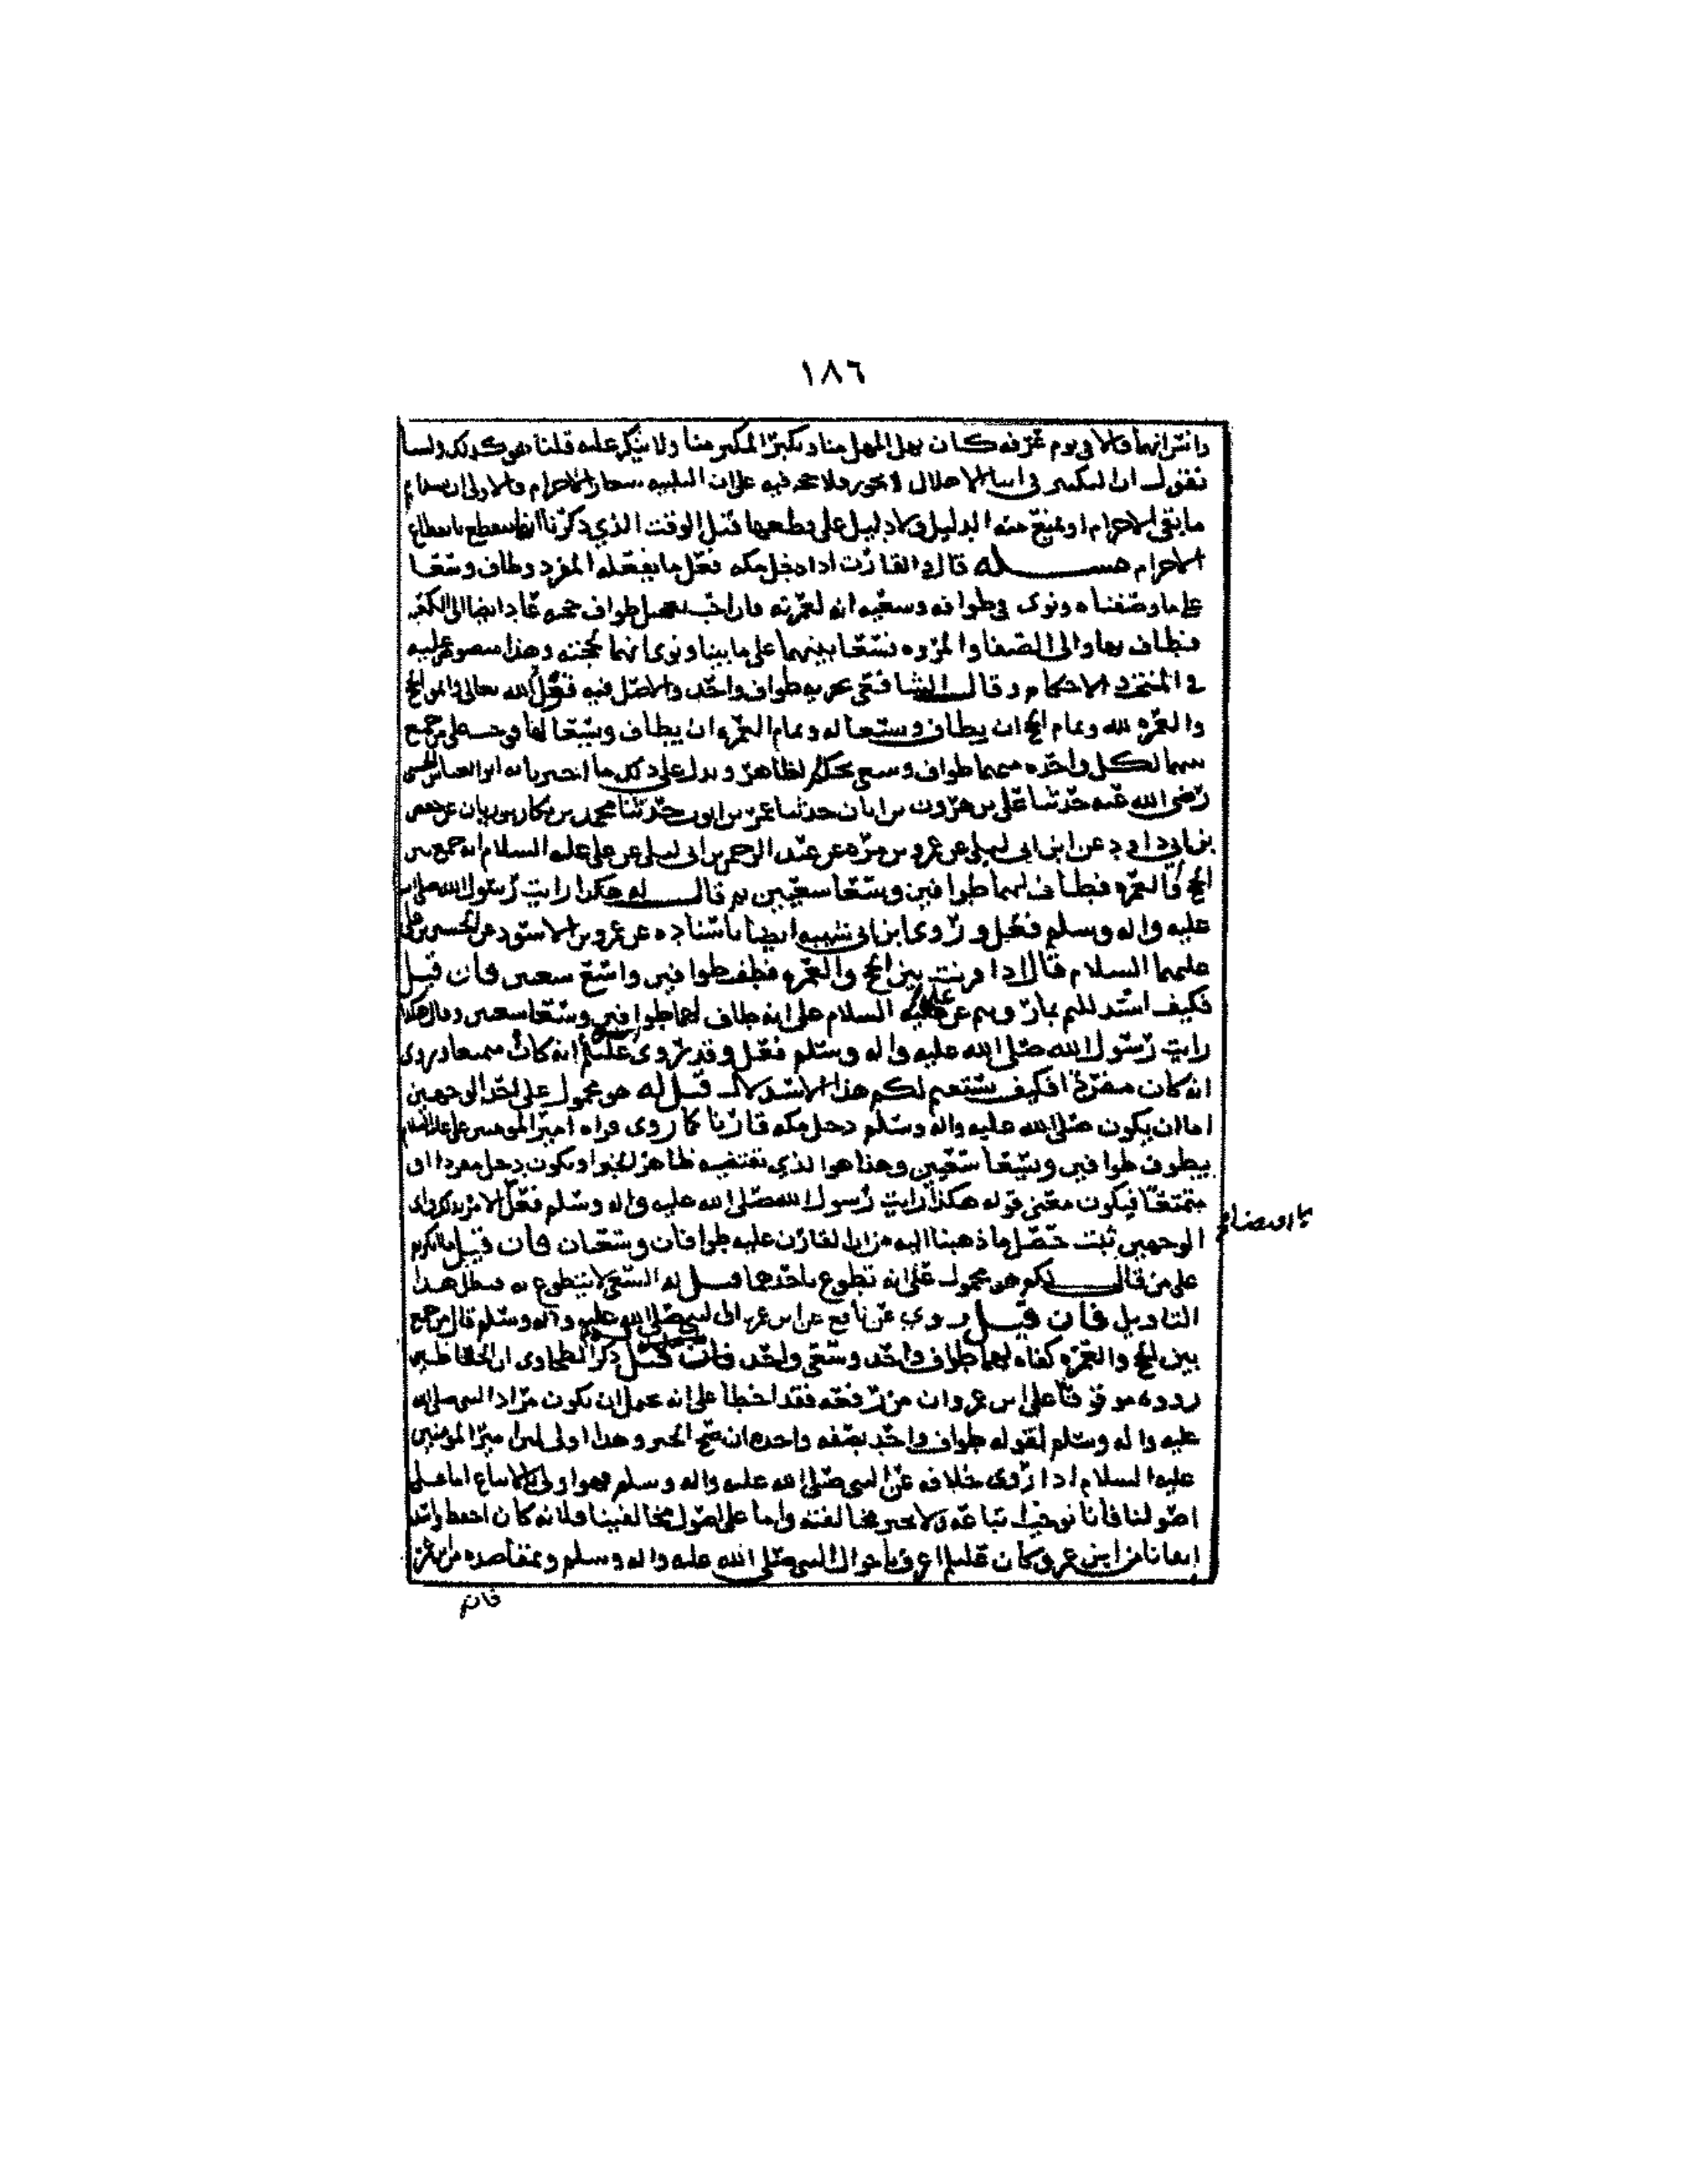 ١٨٦
وانس انهما قالا في يوم عرفه كان يهل المهل منا ويكبر المكبر منا ولا ينكر عليه قلنا هو كذلك ولسنا
نقول ان التكبير في اثنا الاهلال لا يجوز ولا حجه فيه على ان التلبيه شعار الاحرام والاولى ان
ما بقي الاحرام او يمنع منه الدليل ولا دليل على قطعها قبل الوقت الذي ذكرنا انها تنقطع بانقطاع
الاحرام مسـله قال والقارن اذا دخل مكه فعل ما يفعله المفرد وطاف وسعا
على ما وصفناه ونوى في طوافه وسعيه انه لعمرته فان احب تعجيل طواف حجه عاد ايضا الى الكعبه
فطاف بها والى الصفا والمروه فسعا بينهما على ما بينا ونوى انهما لحجته وهذا منصوص عليه
في المنتخب والاحكام وقال الشافعي يجزيه طواف واحد والاصل فيه قول الله تعالى واتموا الحج
والعمره لله وتمام الحج ان يطاف ويسعا له وتمام العمره ان يطاف ويسعا لها فوجب على من جمع
بينهما لكل واحده منهما طواف وسعي بحكم الظاهر ويدل على ذلك ما اخبرنا به ابو العباس الحسني
رضي الله عنه حدثنا علي بن هرون بن ابان حدثنا عمر بن ايوب حدثنا محمد بن بكار بن ريان عن حفص
بن ابي داود عن ابن ابي ليلى عن عمرو بن مره عن عبد الرحمن بن ابي ليلى عن علي عليه السلام انه جمع بين
الحج والعمره فطاف لهما طوافين وسعا سعيين ثم قال له هكذا رايت رسول الله صلى الله
عليه واله وسلم فعل وروى ابن ابي شيبه ايضا باسناده عن عمرو بن الاسود عن الحسن بن علي
عليهما السلام قال اذا قرنت بين الحج والعمره فطف طوافين واسع سعيين فان قيل
فكيف استدللتم بما رويتم عن علي عليه السلام على انه طاف لهما طوافين وسعا سعيين وقال هكذا
رايت رسول الله صلى الله عليه واله وسلم فعل وقد روى عنكم انه كان متمتعا وروى
انه كان مفردا فكيف يستقيم لكم هذا الاستدلال قيل له هو محمول على احد الوجهين
اما ان يكون صلى الله عليه واله وسلم دخل مكه قارنا كما روى فراه امير المومنين علي عليه السلام
يطوف طوافين ويسعا سعيين وهذا هو الذي يقتضيه ظاهر الخبر او يكون دخل مفردا او
متمتعا فيكون معنى قوله هكذا رايت رسول الله صلى الله عليه واله وسلم فعل الامر بذلك واي
الوجهين ثبت حصل ما ذهبنا اليه من ان القارن عليه طوافان وسعيان فان قيل ما انكرتم
على من قال لكم هو محمول على انه تطوع باحدهما قيل له السعي لا يتطوع به فبطل هذا
التاويل فان قيل روي عن نافع عن ابن عمر ان النبي صلى الله عليه وآله وسلم قال من جمع
بين الحج والعمره كفاه لهما طواف واحد وسعي واحد ذكر الطحاوي ان الحفاظ
رووه موقوفا على ابن عمر وان من رفعه فقد اخطا على انه يحتمل ان يكون مراد النبي صلى الله
عليه واله وسلم لقوله طواف واحد بصفه واحده ان صح الخبر وهذا اولى لان امير المومنين
عليه السلام اذا روى خلافه عن النبي صلى الله عليه واله وسلم فهو اولى بالاتباع اما على
اصولنا فانا نوجب اتباعه ولا نجيز مخالفته واما على اصول مخالفينا فلانه كان احفظ واشد
اتقانا من ابن عمر وكان اعرف باحوال النبي صلى الله عليه واله وسلم وبمقاصده من ابن عمر
فان